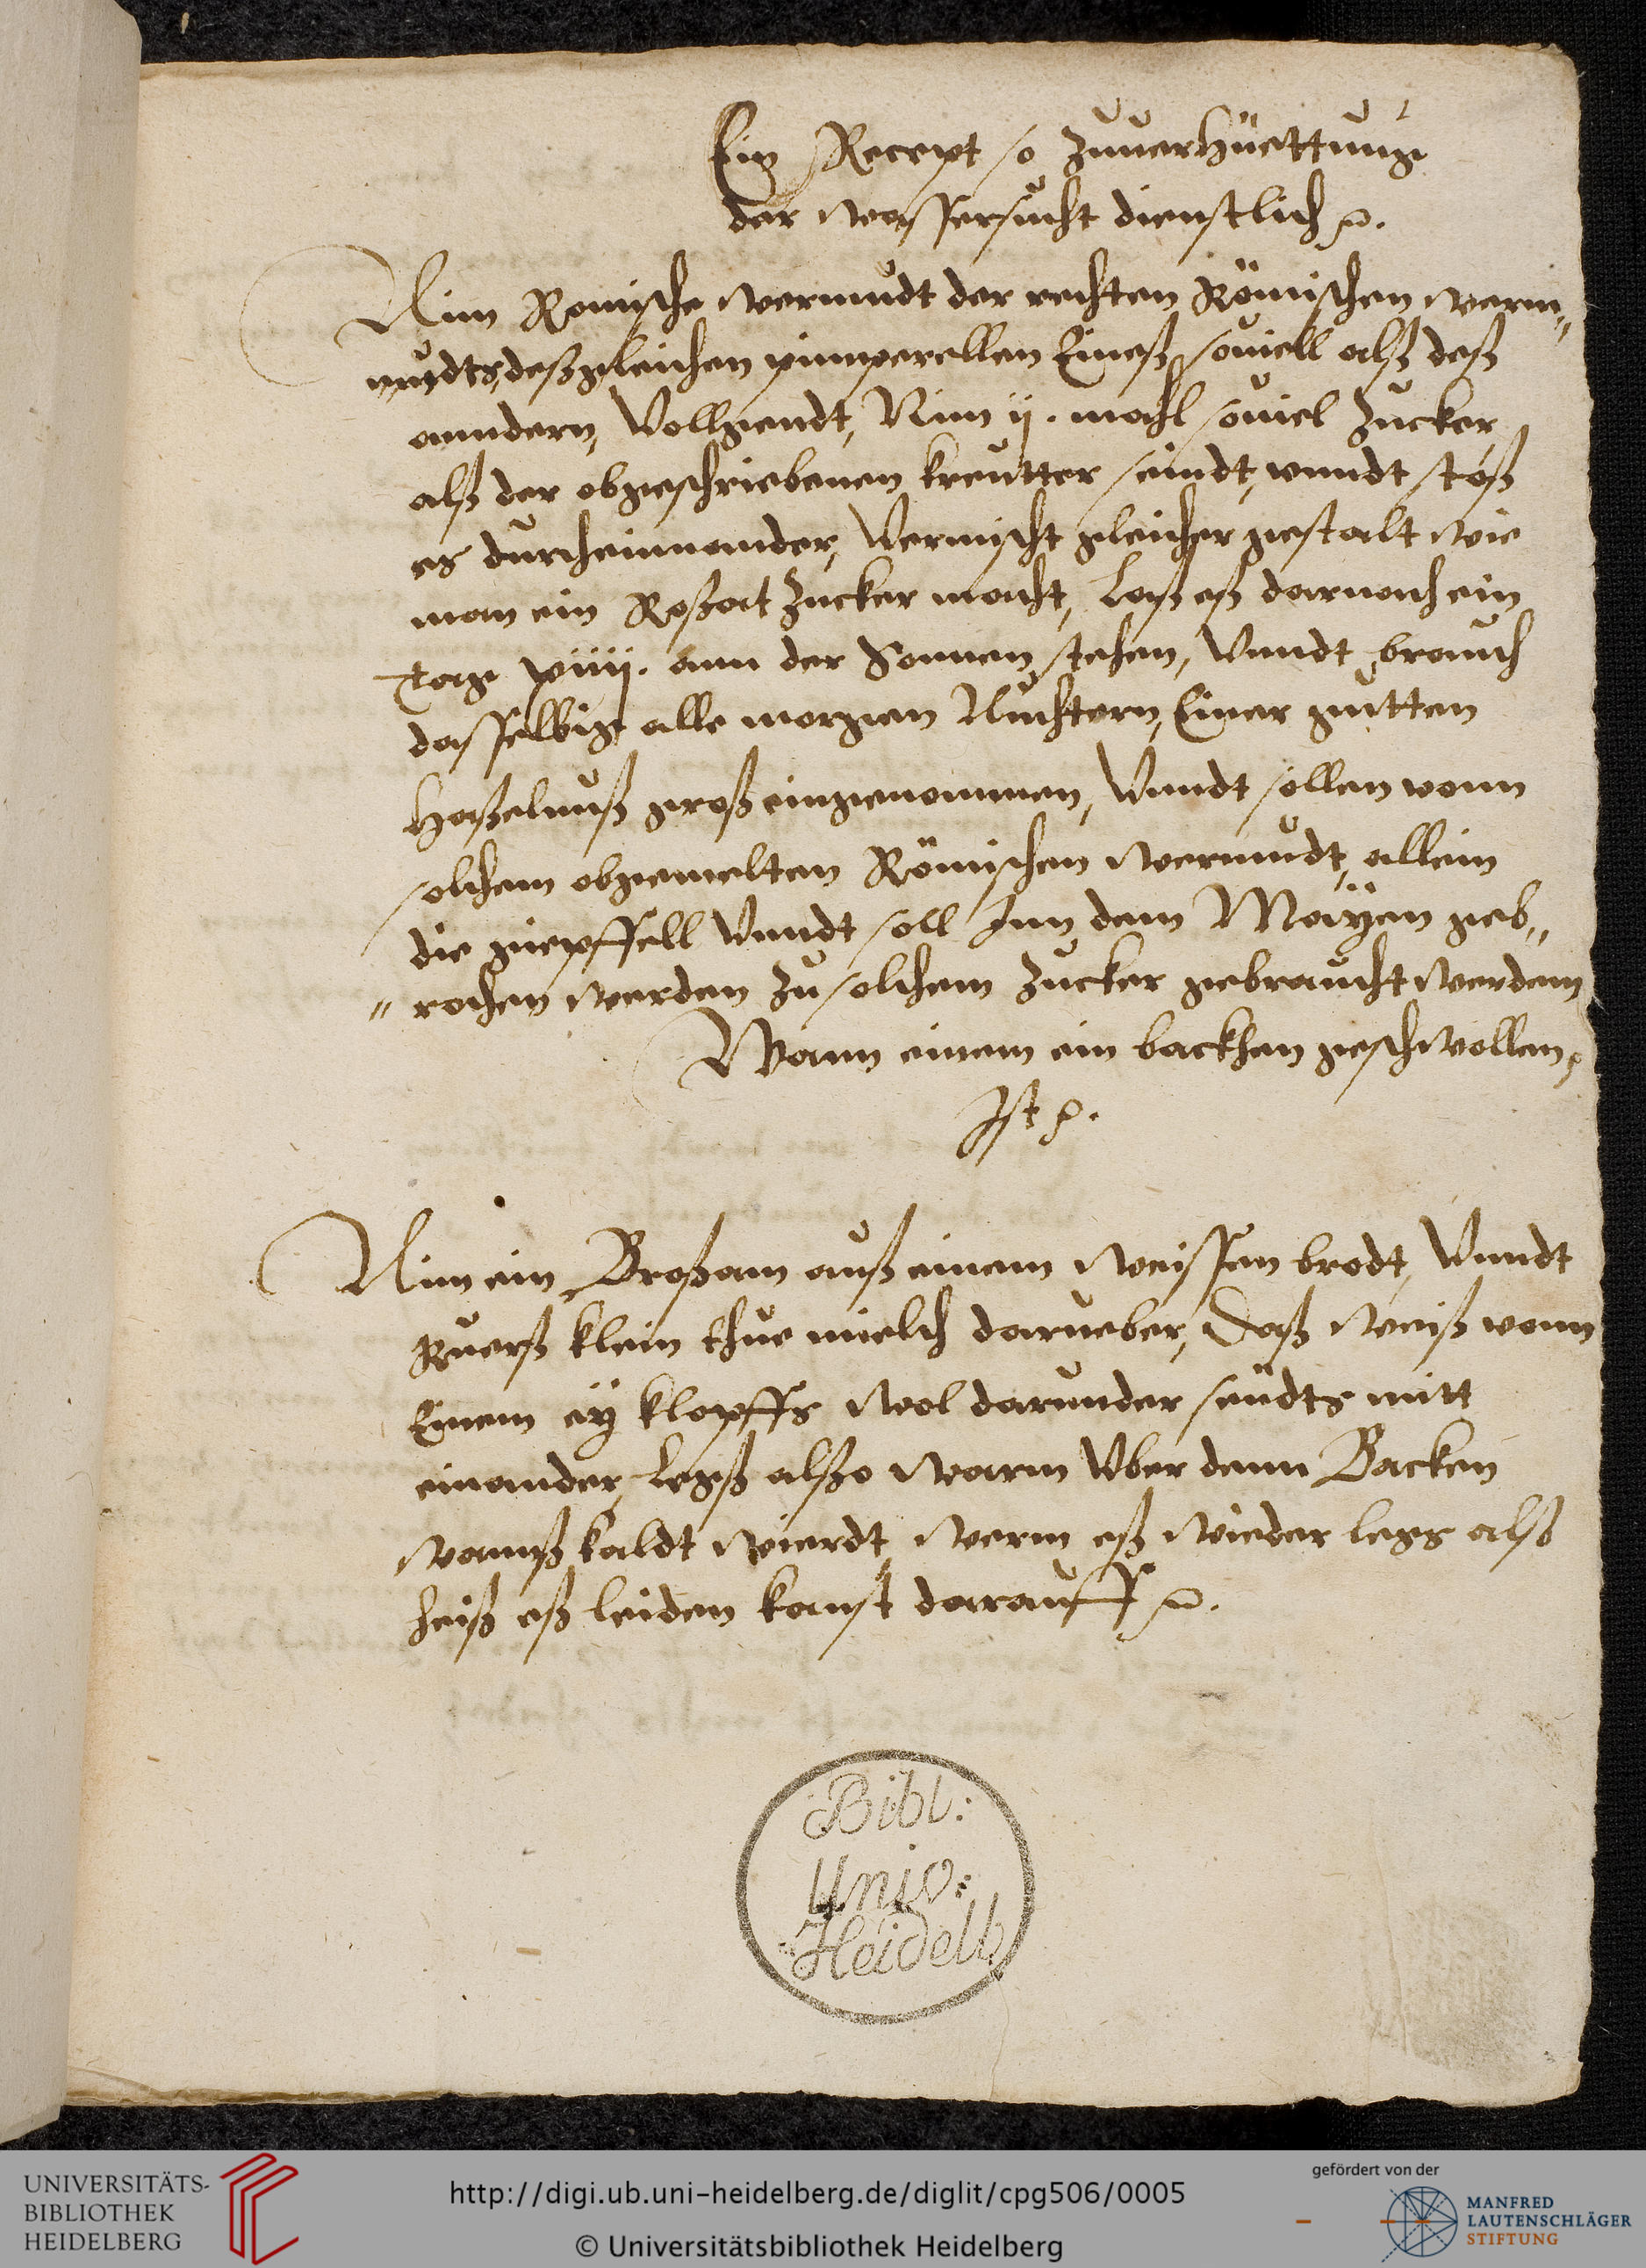 Ein Recept so zuuerhüettung
der wassersucht dienstlich ꝛc.
Nim Romische wermudt der rechten Römischen werm„
„mudts, desßgleichen pimperellen Eineß souiell alß deß
anndern, Vollgendt, Nim ij. mahl souiel Zucker,
alß der obgeschriebenen kreutter seindt, vnndt stoß
es durcheinnander, Vermischt gleicher gestalt wie
man ein Roßat Zucker macht, Laß eß darnach ein
Tag xiiij. ann der Sonnen stehen, Vnndt brauch
dasselbig alle morgen Nuchtern, Einer gutten
Haßelnuß groß eingenommen, Vnndt sollen vonn
solchem obgemelten Römischen wermudt, allein
die giepffell Vnndt soll Inn dem Mäÿen geb„
„rochen werden zu solchem Zucker gebraucht werdem
Wann einem ein backhen geschwollen,
Ist ꝛc.
Nim ein Broßam auß einem weissen brodt, Vnndt
Ruerß klein thue mielch darueber, Daß weiß vonn
Einem eÿ klopffs wol darunder seudts mitt
einander, Legß alßo warm Vber denn Backen
wannß kaldt wierdt, werm eß wieder legs alß
heiß eß leiden kanst darauff ꝛc.
Bibl:
Univ:
Heidelb
UNIVERSITÄTS-
BIBLIOTHEK
HEIDELBERG
http://digi.ub.uni-heidelberg.de/diglit/cpg506/0005
© Universitätsbibliothek Heidelberg
gefördert von der
MANFRED
LAUTENSCHLÄGER
STIFTUNG